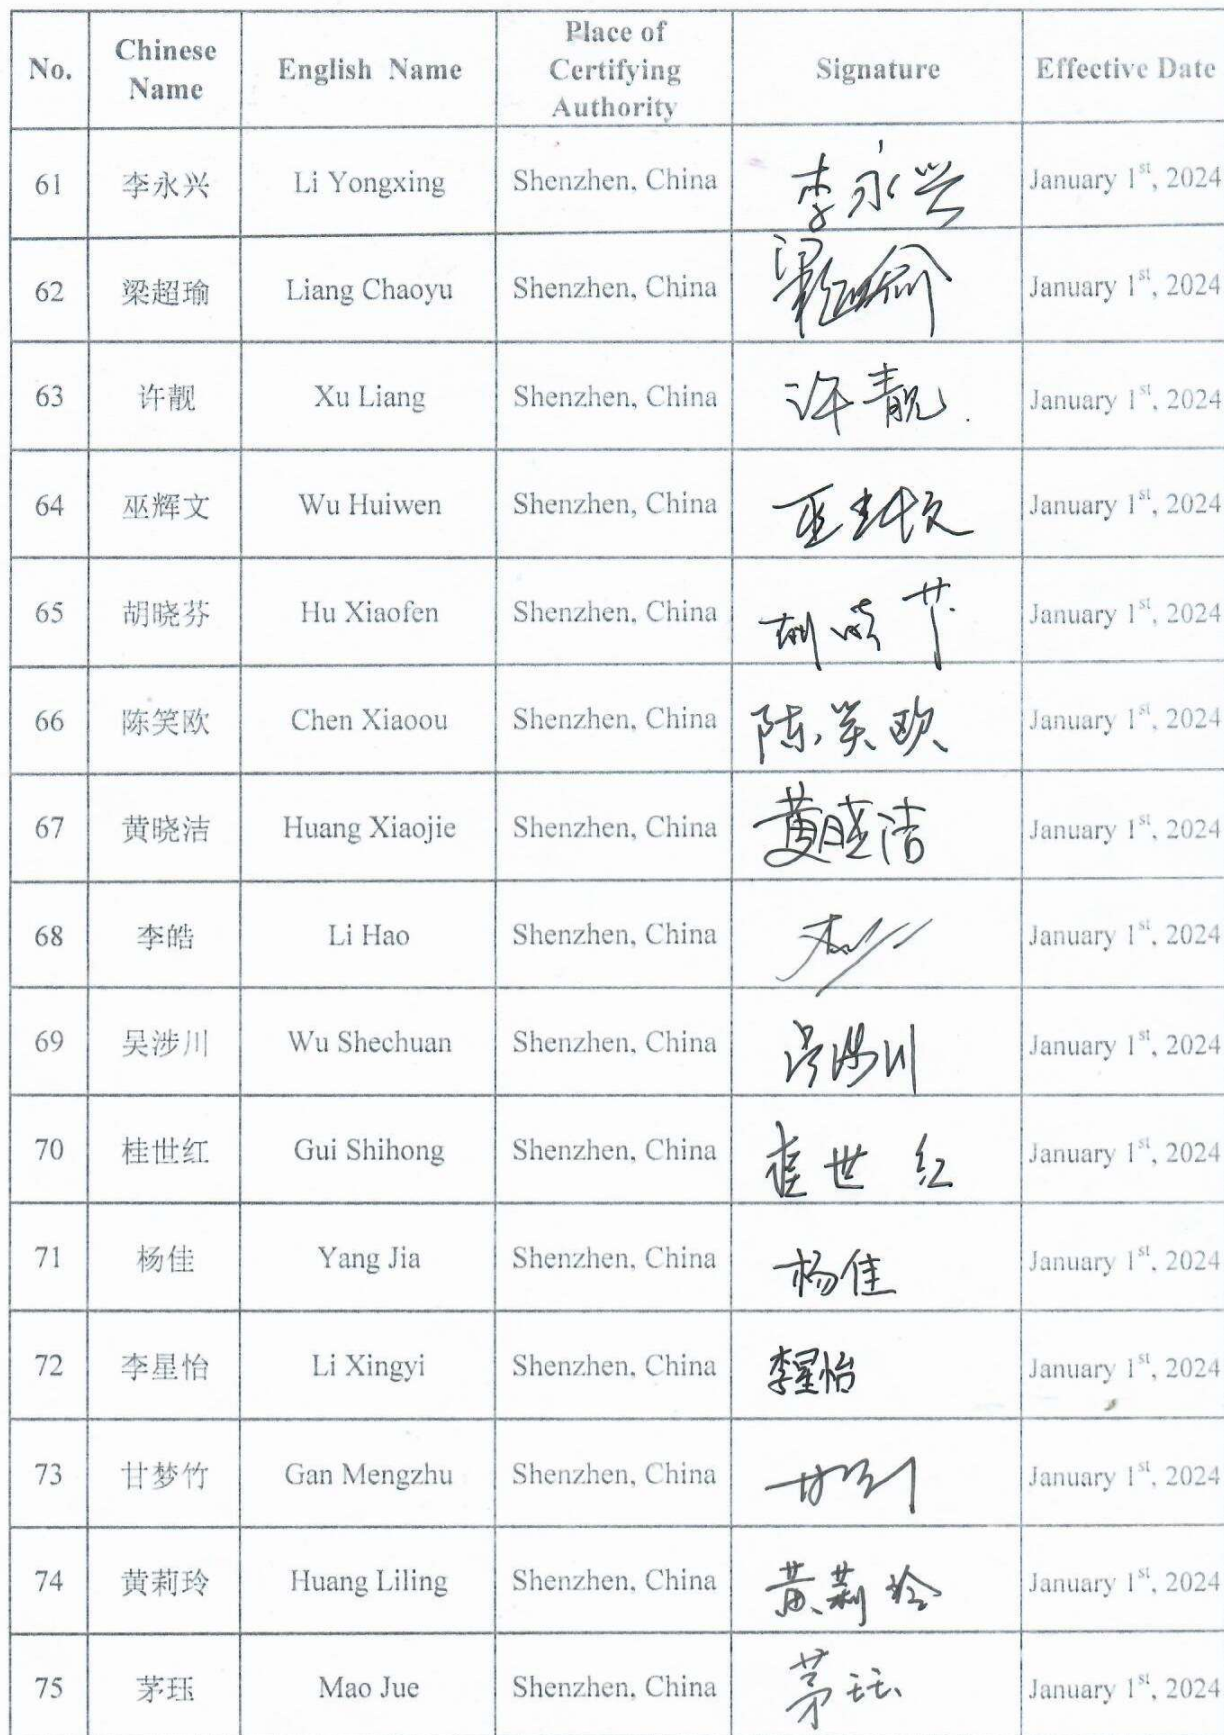 No. Chinese Name English Name Place of Certifying Authority Signature Effective Date
61 李永兴 Li Yongxing Shenzhen, China 李永兴 January 1st, 2024
62 梁超瑜 Liang Chaoyu Shenzhen, China January 1st, 2024
63 许靓 Xu Liang Shenzhen, China 许靓 January 1st, 2024
64 巫辉文 Wu Huiwen Shenzhen, China 巫辉文 January 1st, 2024
65 胡晓芬 Hu Xiaofen Shenzhen, China January 1st, 2024
66 陈笑欧 Chen Xiaoou Shenzhen, China 陈笑欧 January 1st, 2024
67 黄晓洁 Huang Xiaojie Shenzhen, China 黄晓洁 January 1st, 2024
68 李皓 Li Hao Shenzhen, China January 1st, 2024
69 吴涉川 Wu Shechuan Shenzhen, China 吴涉川 January 1st, 2024
70 桂世红 Gui Shihong Shenzhen, China 桂世红 January 1st, 2024
71 杨佳 Yang Jia Shenzhen, China 杨佳 January 1st, 2024
72 李星怡 Li Xingyi Shenzhen, China 李星怡 January 1st, 2024
73 甘梦竹 Gan Mengzhu Shenzhen, China January 1st, 2024
74 黄莉玲 Huang Liling Shenzhen, China 黄莉玲 January 1st, 2024
75 茅珏 Mao Jue Shenzhen, China 茅珏 January 1st, 2024